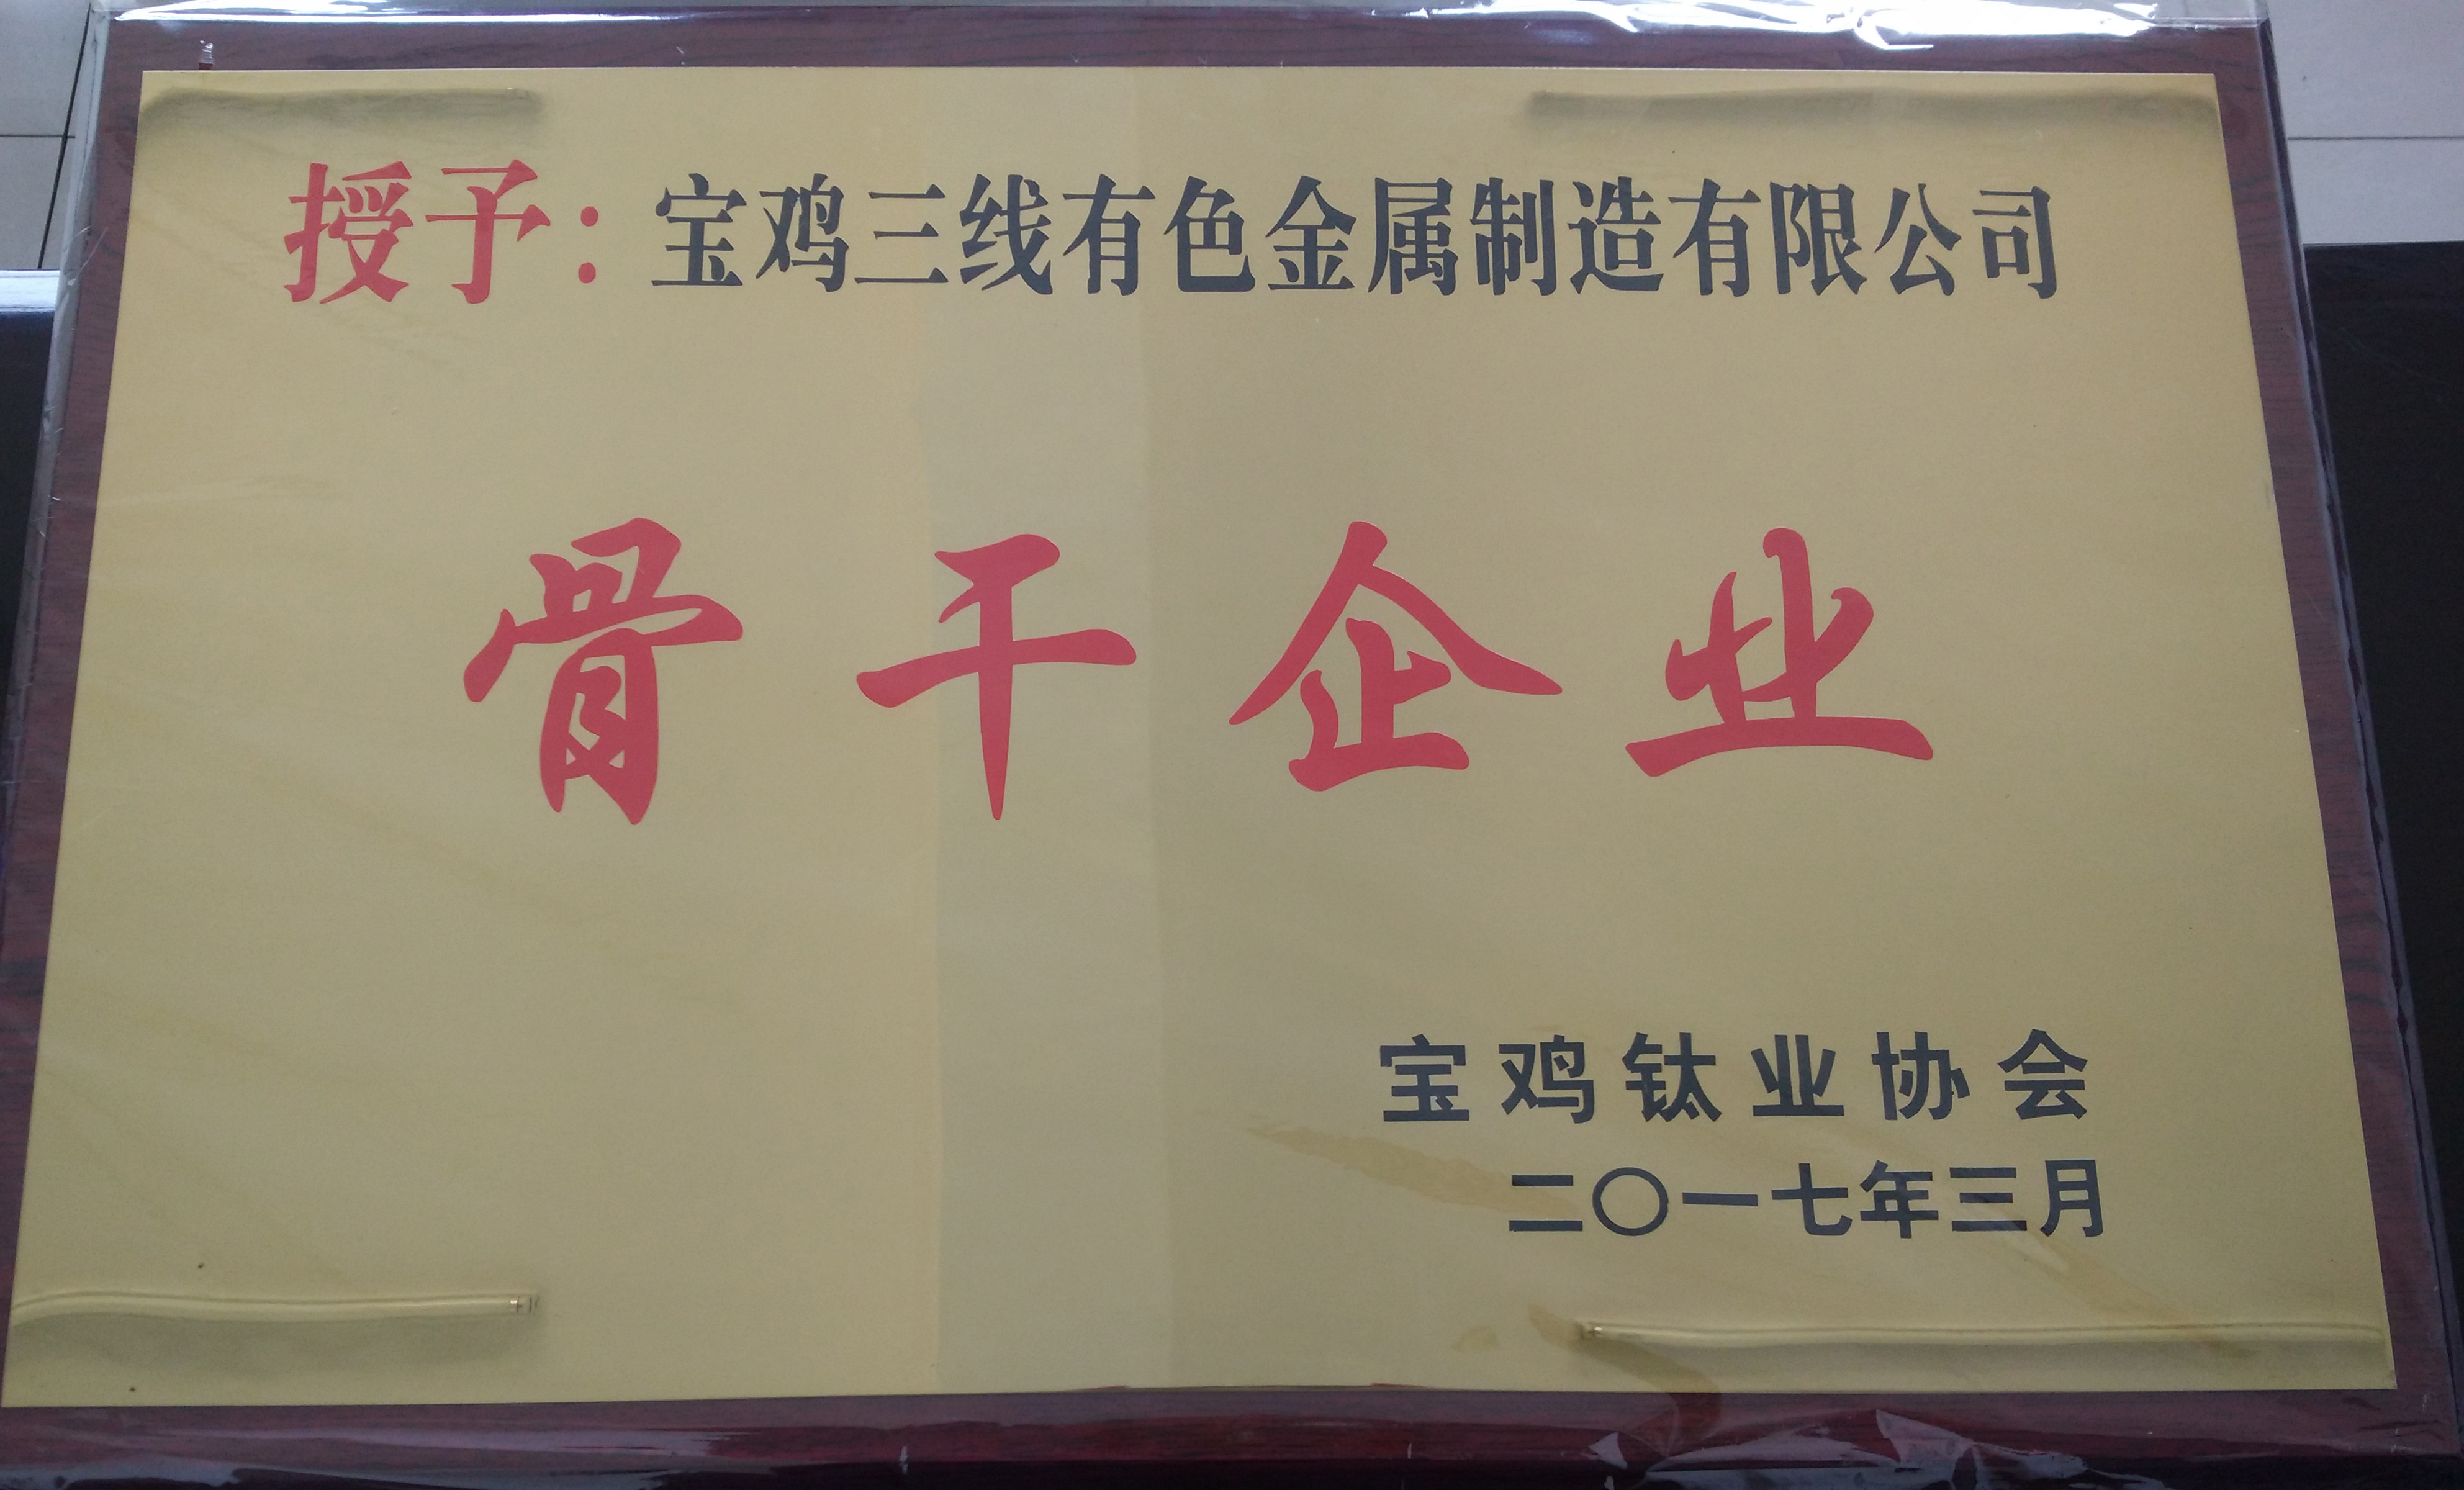 授予：宝鸡三线有色金属制造有限公司
骨干企业
宝鸡钛业协会
二〇一七年三月